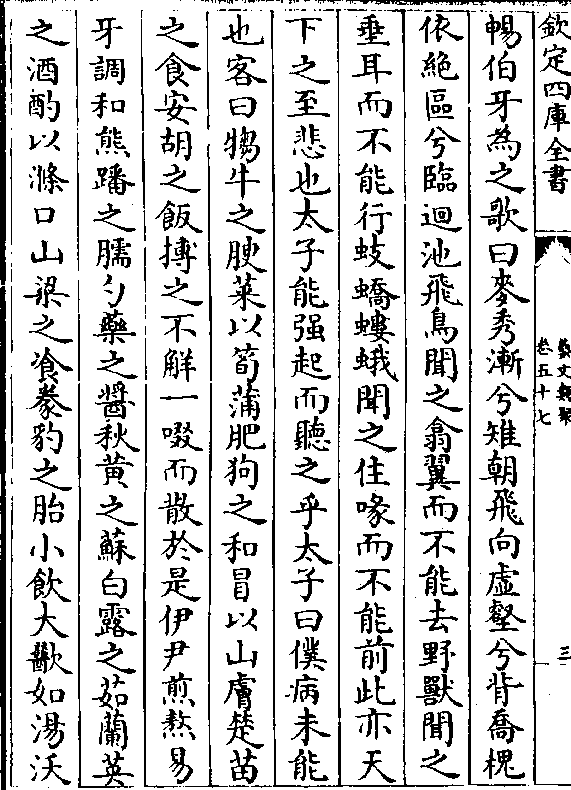 欽定四庫全書
藝文類聚
卷五十七
三
暢伯牙為之歌曰麥秀漸兮雉朝飛向虛壑兮背喬槐
依絶區兮臨迴池飛鳥聞之翕翼而不能去野獸聞之
垂耳而不能行蚑蟜螻蛾聞之住喙而不能前此亦天
下之至悲也太子能强起而聽之乎太子曰僕病未能
也客曰犓牛之腴菜以筍蒲肥狗之和冒以山膚楚苗
之食安胡之飯搏之不解一啜而散於是伊尹煎熬易
牙調和熊蹯之臑勺藥之醬秋黄之蘇白露之茹蘭英
之酒酌以滌口山梁之飡豢豹之胎小飲大歠如湯沃